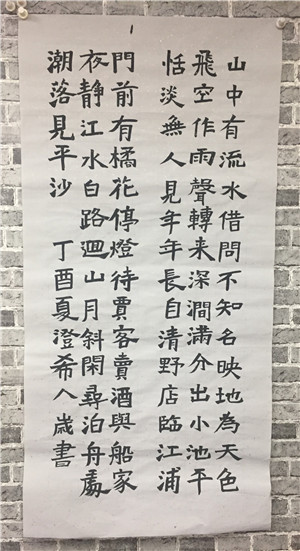 山中有流水借問不知名映地為天色
飛空作雨聲轉来深澗滿分出小池平
恬淡無人見年年長自清野店臨江浦
門前有橘花停燈待賈客賣酒與船家
夜静江水白路迴山月斜閑尋泊舟處
潮落見平沙 丁酉夏澄希八歲書